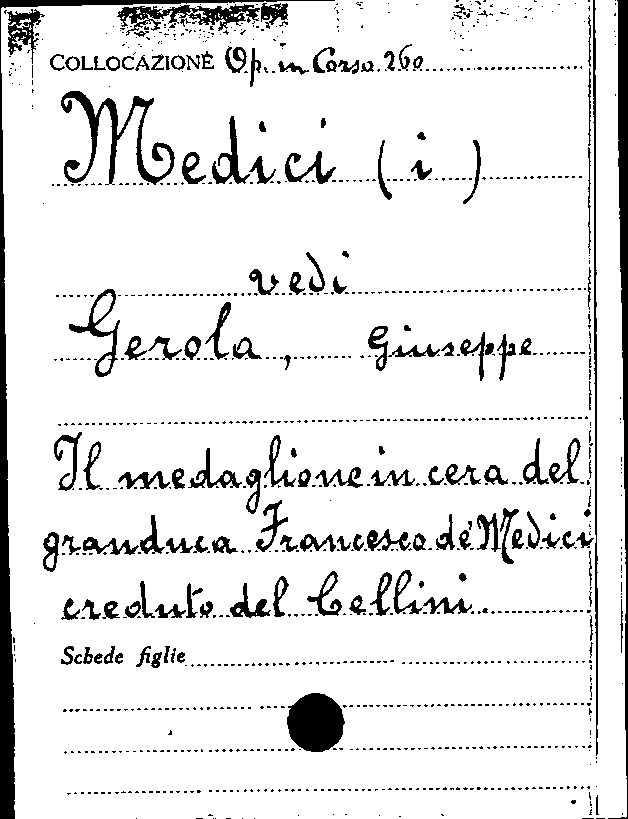 COLLOCAZIONE Op. in Corso 260
Medici (i)
vedi
Gerola, Giuseppe
Il medaglione in cera del
granduca Francesco de' Medici
creduto del Cellini.
Schede figlie